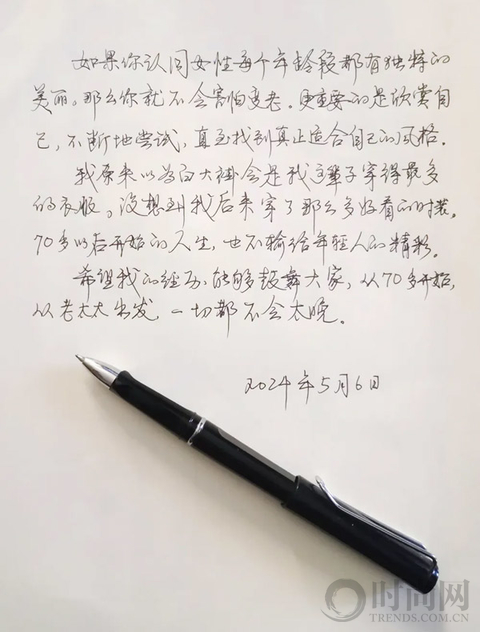 如果你认同女性每个年龄段都有独特的
美丽，那么你就不会害怕变老。更重要的是欣赏自
己，不断地尝试，直至找到真正适合自己的风格。
我原来以为白大褂会是我这辈子穿得最多
的衣服。没想到我后来穿了那么多好看的时装。
70多岁后开始的人生，也不输给年轻人的精彩。
希望我的经历，能够鼓舞大家，从70多开始，
从老太太出发，一切都不会太晚。
2024年5月6日
时尚网
TRENDS.COM.CN